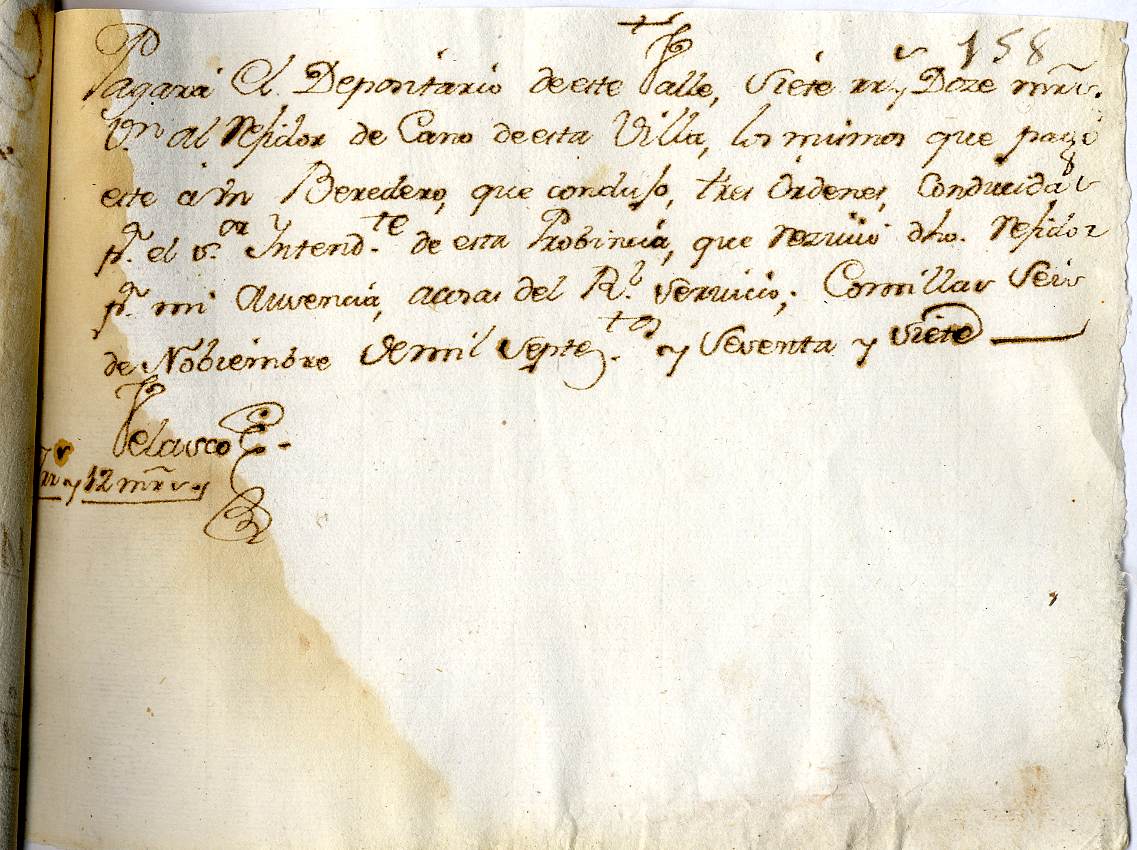 158
Pagará El Depositario de este Valle, Siete rrs y Doze mrvs.
Vn al Rejidor de Cano de esta Villa, los mismos que pagó
este a un Beredero, que condujo, tres Ordenes, Conducidas
pr. el Sor. Intendte. de esta Probincia, que rezivió dho. Rejidor
pr. mi Ausencia, acosas del Rl. Servicio; Comillas Seis
de Nobiembre de mil Septetos. y Setenta y Siete
Velasco
rrs y 12 mrvs